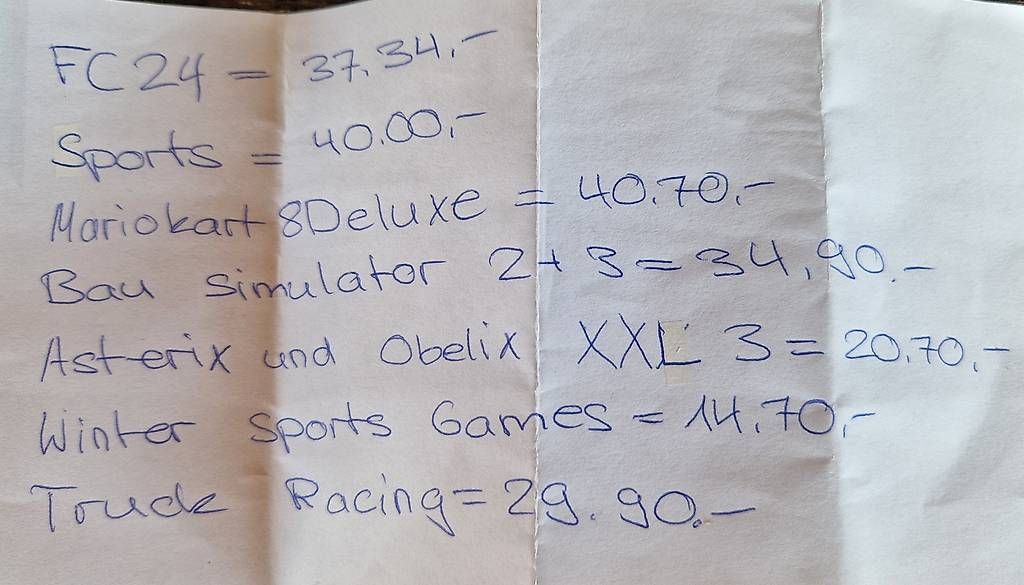 FC24 = 37.34.-
Sports = 40.00.-
Mariokart 8Deluxe = 40.70.-
Bau simulator 2+3 = 34,90.-
Asterix und Obelix XXL 3 = 20.70.-
Winter sports Games = 14.70.-
Truck Racing = 29.90.-